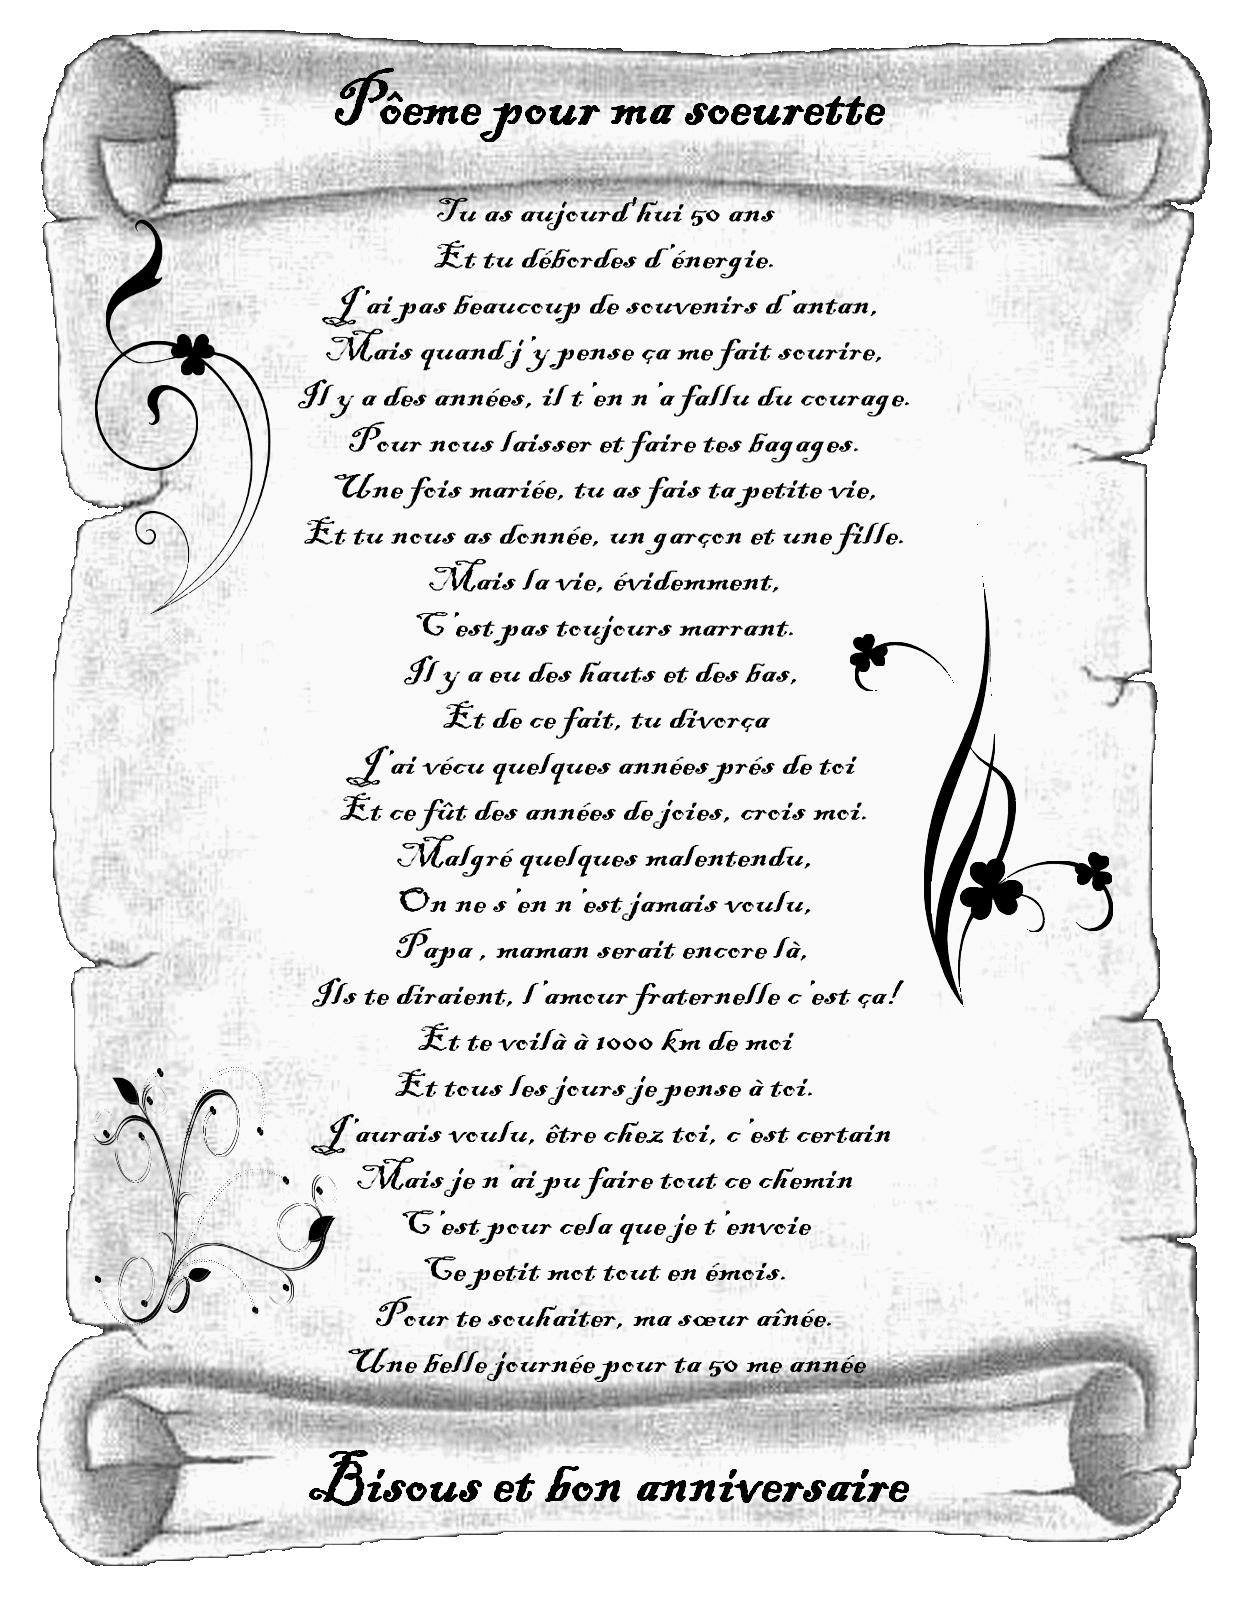 Pôeme pour ma soeurette
Tu as aujourd'hui 50 ans
Et tu débordes d'énergie.
J'ai pas beaucoup de souvenirs d'antan,
Mais quand j'y pense ça me fait sourire,
Il y a des années, il t'en n'a fallu du courage.
Pour nous laisser et faire tes bagages.
Une fois mariée, tu as fais ta petite vie,
Et tu nous as donnée, un garçon et une fille.
Mais la vie, évidemment,
C'est pas toujours marrant.
Il y a eu des hauts et des bas,
Et de ce fait, tu divorça
J'ai vécu quelques années prés de toi
Et ce fût des années de joies, crois moi.
Malgré quelques malentendu,
On ne s'en n'est jamais voulu,
Papa , maman serait encore là,
Ils te diraient, l'amour fraternelle c'est ça!
Et te voilà à 1000 km de moi
Et tous les jours je pense à toi.
J'aurais voulu, être chez toi, c'est certain
Mais je n'ai pu faire tout ce chemin
C'est pour cela que je t'envoie
Ce petit mot tout en émois.
Pour te souhaiter, ma sœur aînée.
Une belle journée pour ta 50 me année
Bisous et bon anniversaire